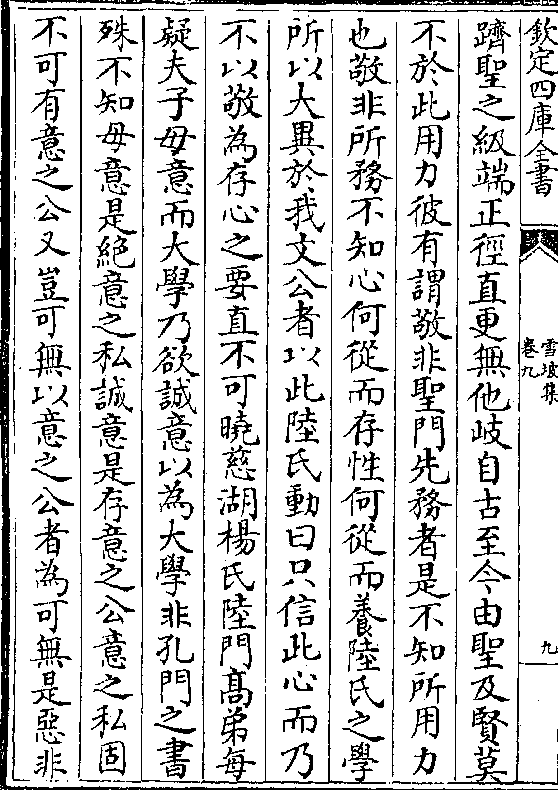 欽定四庫全書
雪坡集
卷九
九
躋聖之級端正徑直更無他岐自古至今由聖及賢莫
不於此用力彼有謂敬非聖門先務者是不知所用力
也敬非所務不知心何從而存性何從而養陸氏之學
所以大異於我文公者以此陸氏動曰只信此心而乃
不以敬為存心之要直不可曉慈湖楊氏陸門髙弟每
疑夫子毋意而大學乃欲誠意以為大學非孔門之書
殊不知毋意是絶意之私誠意是存意之公意之私固
不可有意之公又豈可無以意之公者為可無是惡非